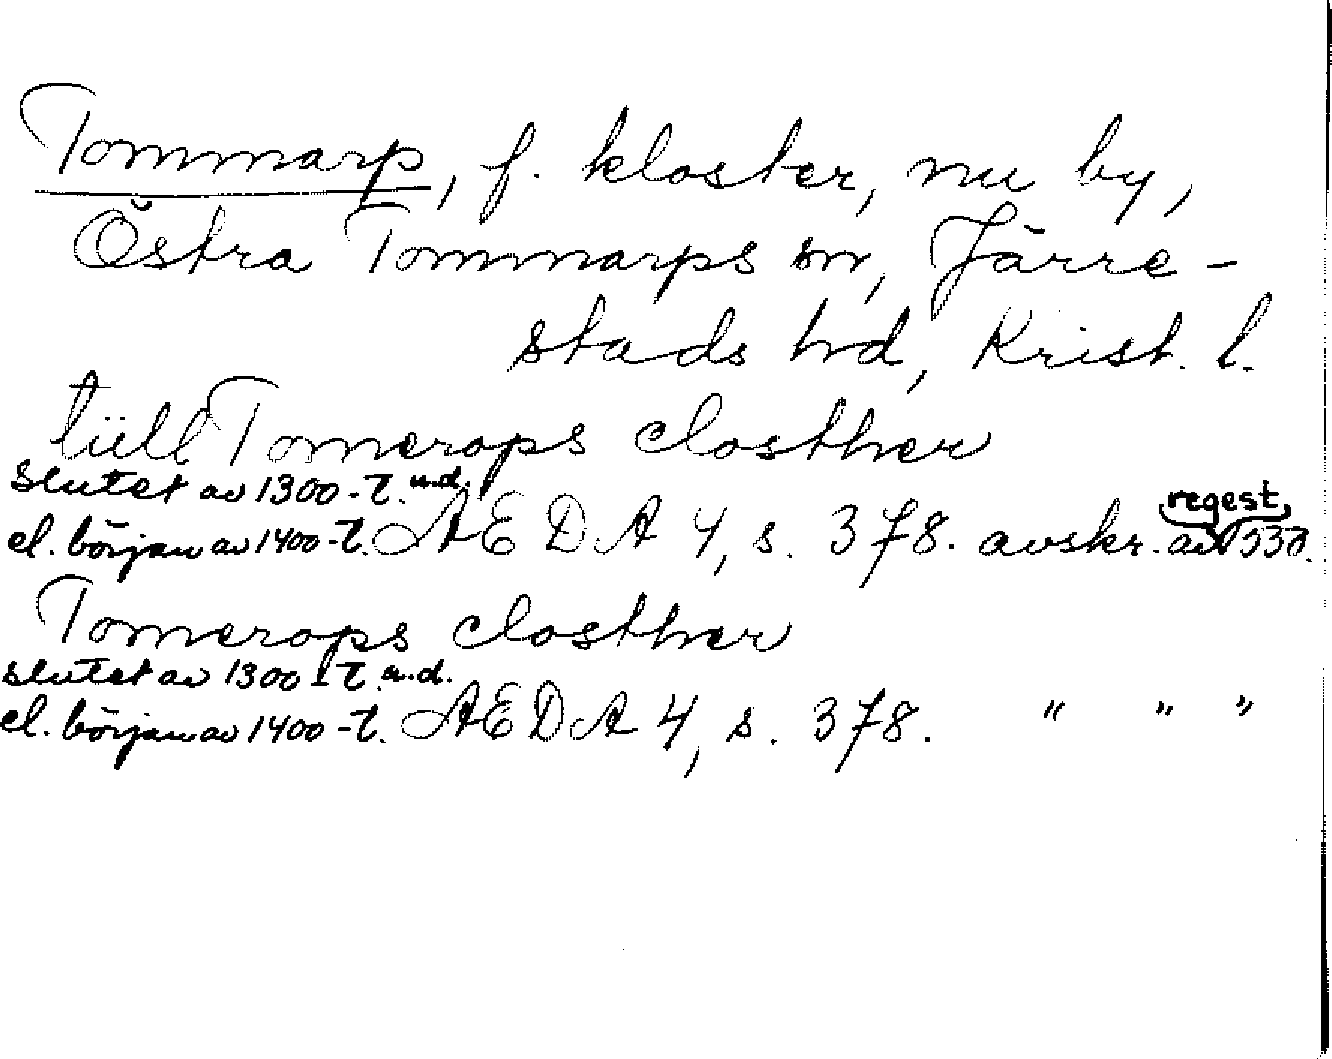 Tommarp, f. kloster, nu by,
Östra Tommarps sn, Järre-
stads hd, Krist. l.
tüll Tomerops closther
slutet av 1300-t. u.d.
el. början av 1400-t. AEDA 4, s. 378. avskr. av regest 1530.
Tomerops closther
slutet av 1300-t. u.d.
el. början av 1400-t. AEDA 4, s. 378. " " "